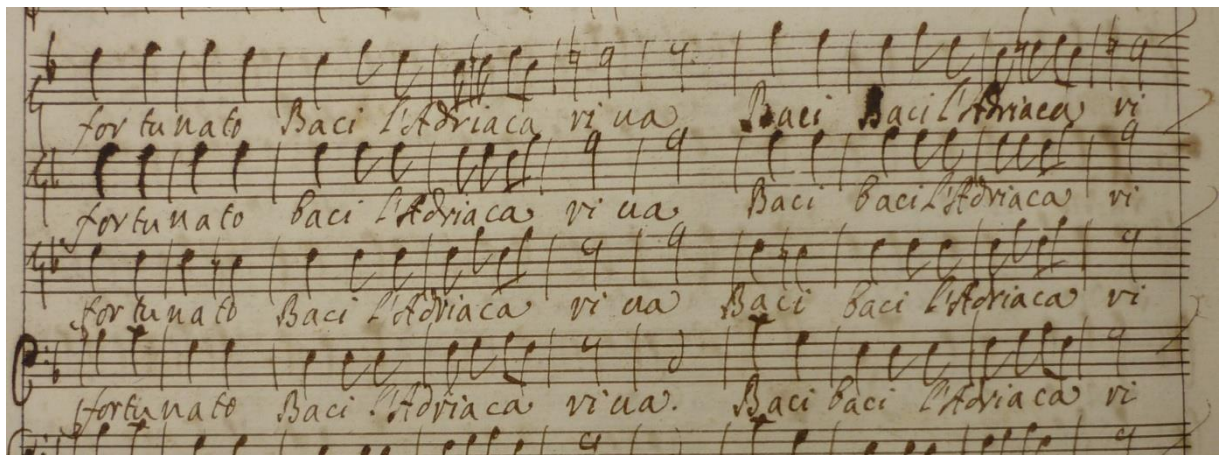 fortunato Baci l'Adriaca riua Baci Baci l'Adriaca ri
fortunato baci l'Adriaca riua Baci baci l'Adriaca ri
fortunato Baci l'Adriaca riua Baci baci l'Adriaca ri
fortunato Baci l'Adriaca riua. Baci baci l'Adriaca ri